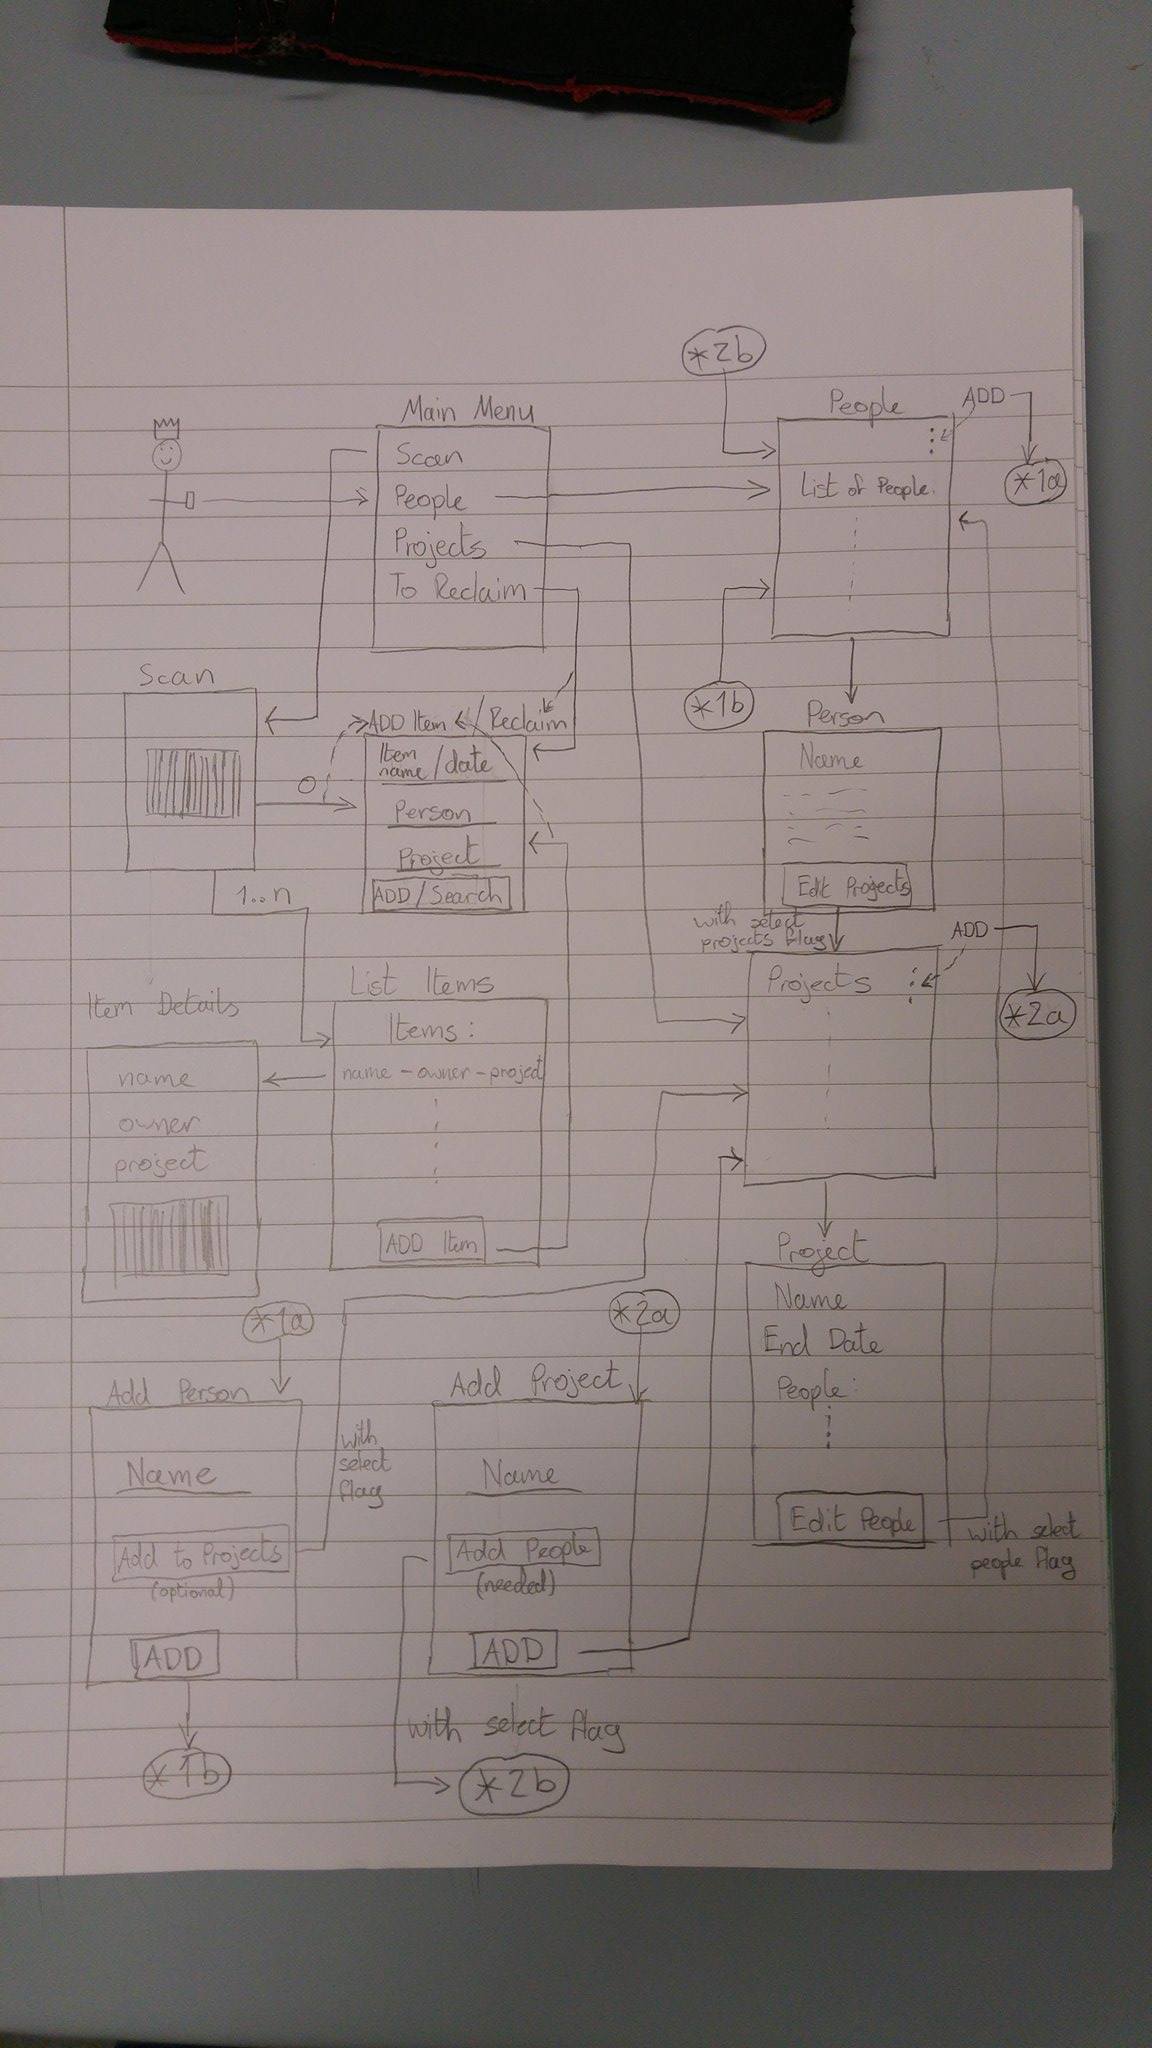 *2b
Main Menu
Scan
People
Projects
To Reclaim
People
ADD
List of People.
*1a
*1b
Scan
ADD Item / Reclaim
Item
name / date
Person
Project
ADD / Search
0
1..n
Person
Name
Edit Projects
with select
projects flag
ADD
Projects
*2a
List Items
Items :
name - owner - project
ADD Item
Item Details
name
owner
project
Project
Name
End Date
People :
Edit People
with select
people flag
*1a
Add Person
Name
Add to Projects
(optional)
ADD
*1b
with
select
flag
*2a
Add Project
Name
Add People
(needed)
ADD
with select flag
*2b